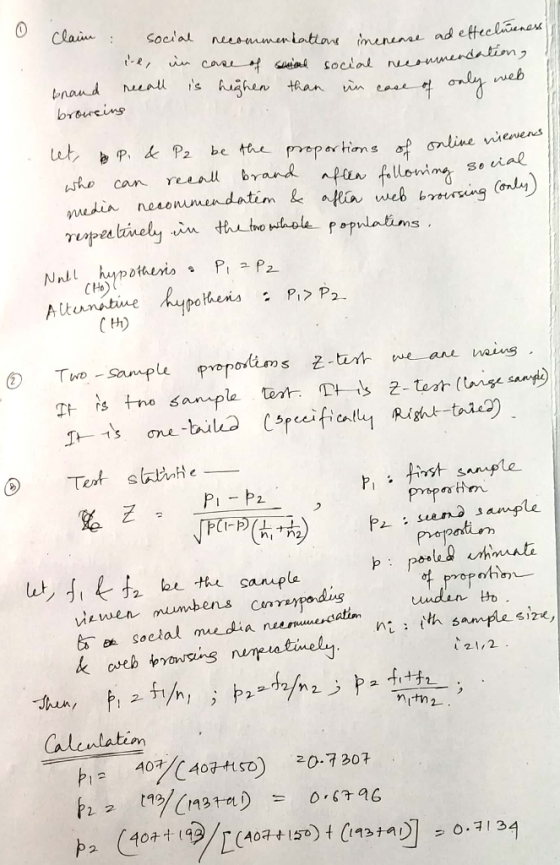 ① Claim : Social recommendations increase ad effectiveness
i.e, in case of social recommendation,
brand recall is higher than in case of only web
browsing
Let, P1 & P2 be the proportions of online viewers
who can recall brand after following social
media recommendation & after web browsing (only)
respectively in the two whole populations.
Null hypothesis : P1 = P2
(H0)
Alternative hypothesis : P1 > P2
(H1)
② Two-sample proportions Z-test we are using.
It is two sample test. It is Z-test (large sample)
It is one-tailed (specifically Right-tailed).
③ Test statistic —
Z = p1 - p2 / √p(1-p)(1/n1 + 1/n2) ,
p1 : first sample
proportion
p2 : second sample
proportion
p : pooled estimate
of proportion
under H0.
ni : ith sample size,
i=1,2.
Let, f1 & f2 be the sample
viewer numbers corresponding
to social media recommendation
& web browsing respectively.
Then, p1 = f1/n1 ; p2 = f2/n2 ; p = f1+f2 / n1+n2 ;
Calculation
p1 = 407/(407+150) = 0.7307
p2 = 193/(193+91) = 0.6796
p = (407+193)/[(407+150)+(193+91)] = 0.7134